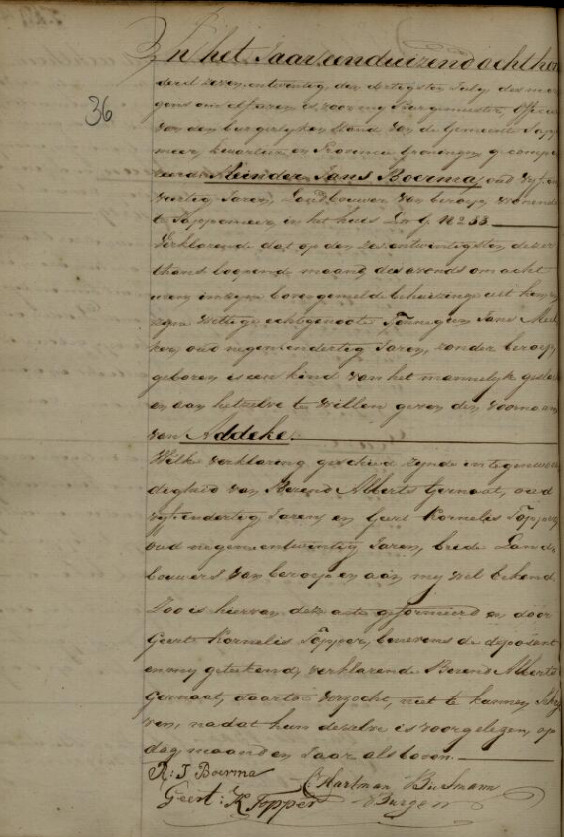 In het Jaar eenduizend acht hon
derd zeven en twintig, den dertigsten July, des mor
gens om elf uren is, voor my Burgemeester, Officier
van den burgerlyken Stand, van de Gemeente Sapp
meer, kwartier en Provincie Groningen, gecompa
36
reerd Reinder Jans Boerma, oud vyf en
veertig Jaren, Landbouwer van beroep, wonende
te Sappemeer in het huis N 253
Verklarende dat op den zes en twintigsten dezer
thans loopende maand des avonds om acht
uren in zyne bovengemelde behuizinge uit hem en
zyne Wettige echtgenoote Jans
oud negen en dertig Jaren, zonder beroep,
geboren is een kind van het mannelyk gesla
en aan hetzelve te willen geven den voornaam
van Addeke.
Welke verklaring geschied zynde in tegenwoor
digheid van Berend Alberts Gernaat, oud
vyf en dertig Jaren, en Geert Kornelis Topper,
oud negen en twintig Jaren, beide Land
bouwers van beroep en aan my wel bekend
Zoo is hiervan deze acte geformeerd en door
Geert Kornelis Topper, benevens de deposant
en my geteekend, verklarende Berend Alberts
Gernaat, daartoe verzocht, niet te kunnen Schry
ven, nadat hun dezelve is voorgelezen, op
dag maand en Jaar als boven.
R: J Boerma
Hartman
Geert: K Topper
Burgem